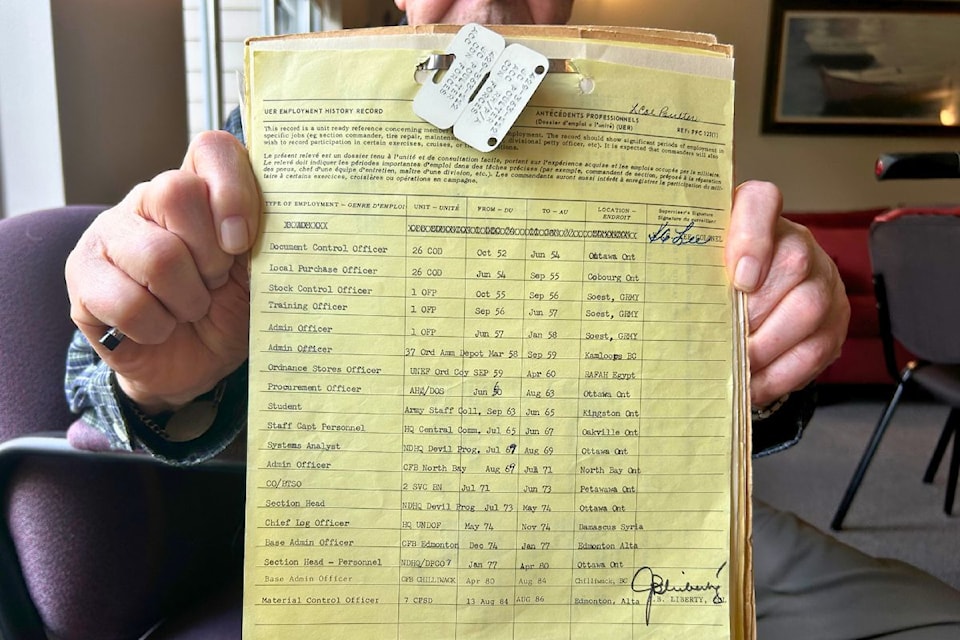 UER EMPLOYMENT HISTORY RECORD
ANTÉCÉDENTS PROFESSIONNELS
(Dossier d'emploi à l'unité) (UER)
REF: PFC 123(1)
This record is a unit ready reference concerning employment. The record should show significant periods of employment in
specific jobs (eg section commander, tire repair, divisional petty officer, etc). It is expected that commanders will also
wish to record participation in certain exercises, cruises, or
Le présent relevé est un dossier tenu à l'unité et de consultation facile, portant sur l'expérience acquise et les emplois occupés par le militaire.
Le relevé doit indiquer les périodes importantes d'emploi dans des tâches précises (par exemple, commandant de section, préposé à la réparation
des pneus, chef d'une équipe d'entretien, maître d'une division, etc.). Les commandants auront aussi intérêt à enregistrer la participation du mili-
taire à certains exercices, croisières ou opérations en campagne.
TYPE OF EMPLOYMENT – GENRE D'EMPLOI UNIT – UNITÉ FROM – DU TO – AU LOCATION – ENDROIT Supervisor's Signature
Signature du surveillant
Document Control Officer 26 COD Oct 52 Jun 54 Ottawa Ont
Local Purchase Officer 26 COD Jun 54 Sep 55 Cobourg Ont
Stock Control Officer 1 OFP Oct 55 Sep 56 Soest, GRMY
Training Officer 1 OFP Sep 56 Jun 57 Soest, GRMY
Admin Officer 1 OFP Jun 57 Jan 58 Soest, GRMY
Admin Officer 37 Ord Amm Depot Mar 58 Sep 59 Kamloops BC
Ordnance Stores Officer UNEF Ord Coy SEP 59 Apr 60 RAFAH Egypt
Procurement Officer AHQ/DOS Jun 60 Aug 63 Ottawa Ont
Student Army Staff Coll, Sep 63 Jun 65 Kingston Ont
Staff Capt Personnel HQ Central Comm. Jul 65 Jun 67 Oakville Ont
Systems Analyst NDHQ Devil Prog. Jul 67 Aug 69 Ottawa Ont
Admin Officer CFB North Bay Aug 69 Jul 71 North Bay Ont
CO/BTSO 2 SVC BN Jul 71 Jun 73 Petawawa Ont
Section Head NDHQ Devil Prog Jul 73 May 74 Ottawa Ont
Chief Log Officer HQ UNDOF May 74 Nov 74 Damascus Syria
Base Admin Officer CFB Edmonton Dec 74 Jan 77 Edmonton Alta
Section Head - Personnel NDHQ/DPCO7 Jan 77 Apr 80 Ottawa Ont
Base Admin Officer CFB CHILLIWACK Apr 80 Aug 84 Chilliwack, BC
Material Control Officer 7 CFSD 13 Aug 84 AUG 86 Edmonton, Alta J.B. LIBERTY,